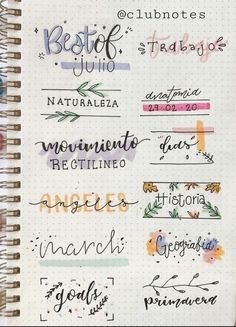 @clubnotes
Best of
julio
Trabajo
Trabajo
NATURALEZA
anatomia
27-02-20
movimiento
RECTILINEO
dias
ANGELES
angeles
Historia
march
Geografía
goals
primavera